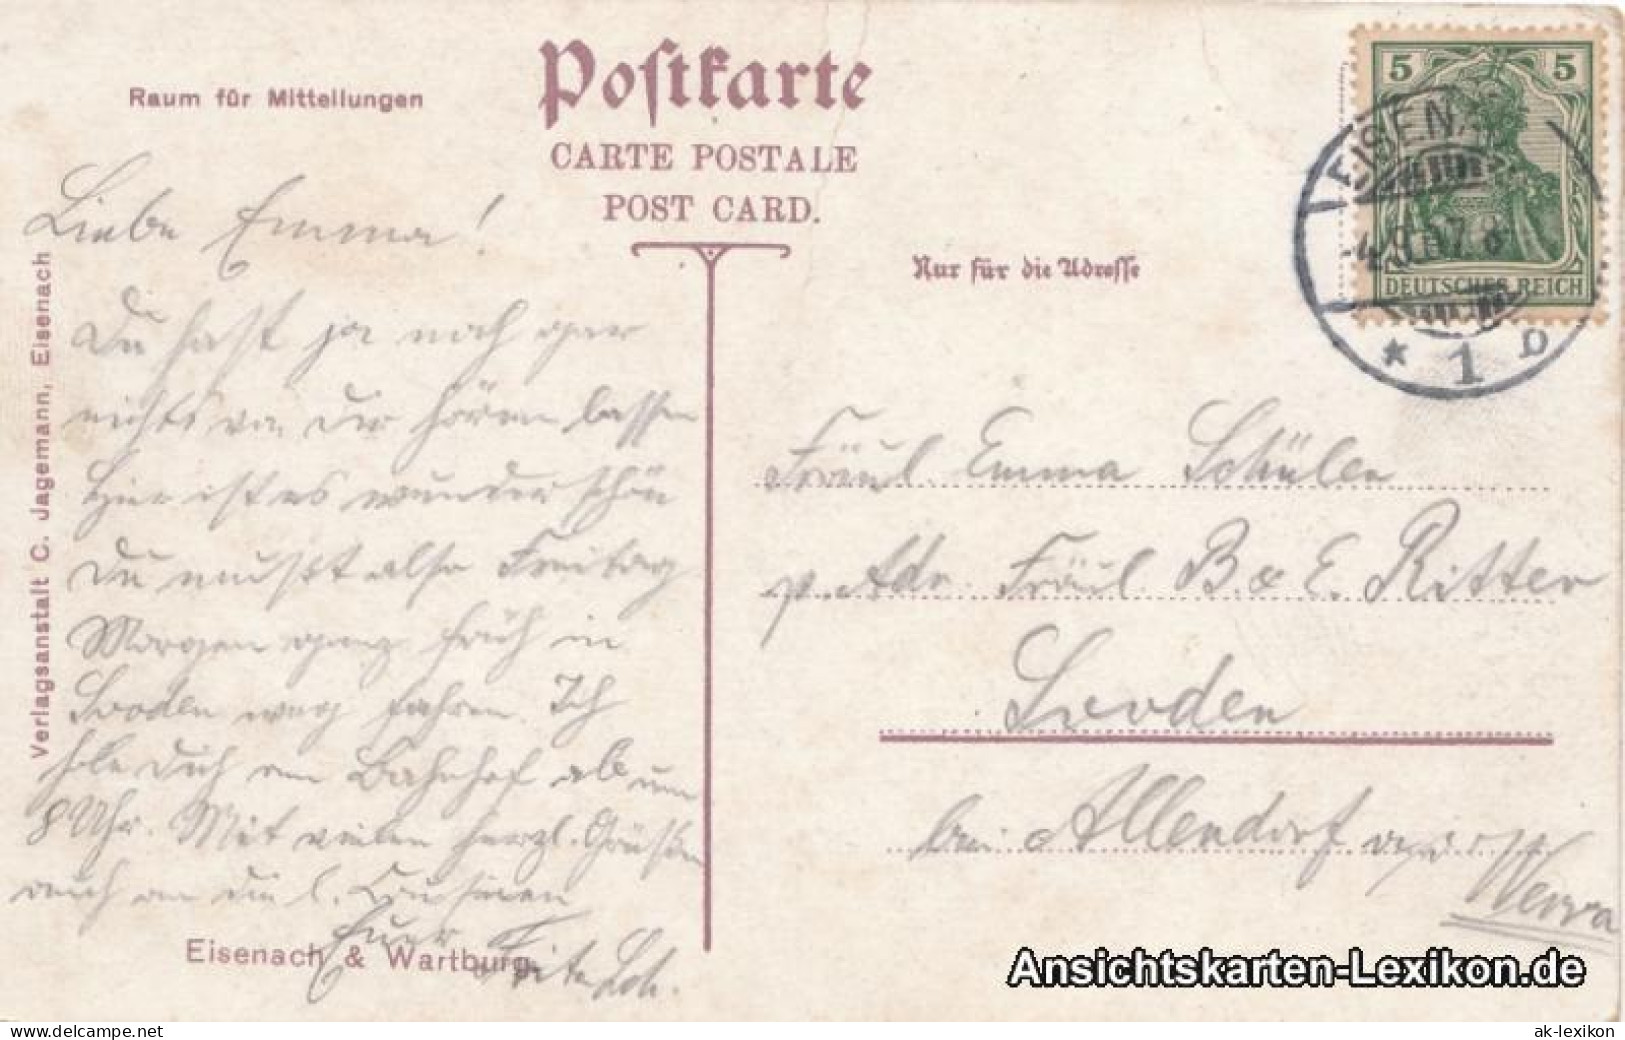 Raum für Mitteilungen
Postkarte
CARTE POSTALE
POST CARD.
Nur für die Adresse
5 5
DEUTSCHES REICH
EISENA
* 1 D
Verlagsanstalt C. Jagemann, Eisenach
Liebe Emma!
Du hast ja noch gar
nichts von Dir hören lassen
Hier ist es wunderschön
Du mußt also Freitag
Morgen ganz früh in
Sooden weg fahren. Ich
hole Dich am Bahnhof ab um
8 Uhr. Mit vielen herzl. Grüßen
auch an die l. Cousinen
Euer
Eisenach & Wartburg
Fräul. Emma Schüler
p. Adr. Fräul. B. & E. Ritter
Sooden
bei Allendorf a. d.
Werra
Ansichtskarten-Lexikon.de
www.delcampe.net
ak-lexikon